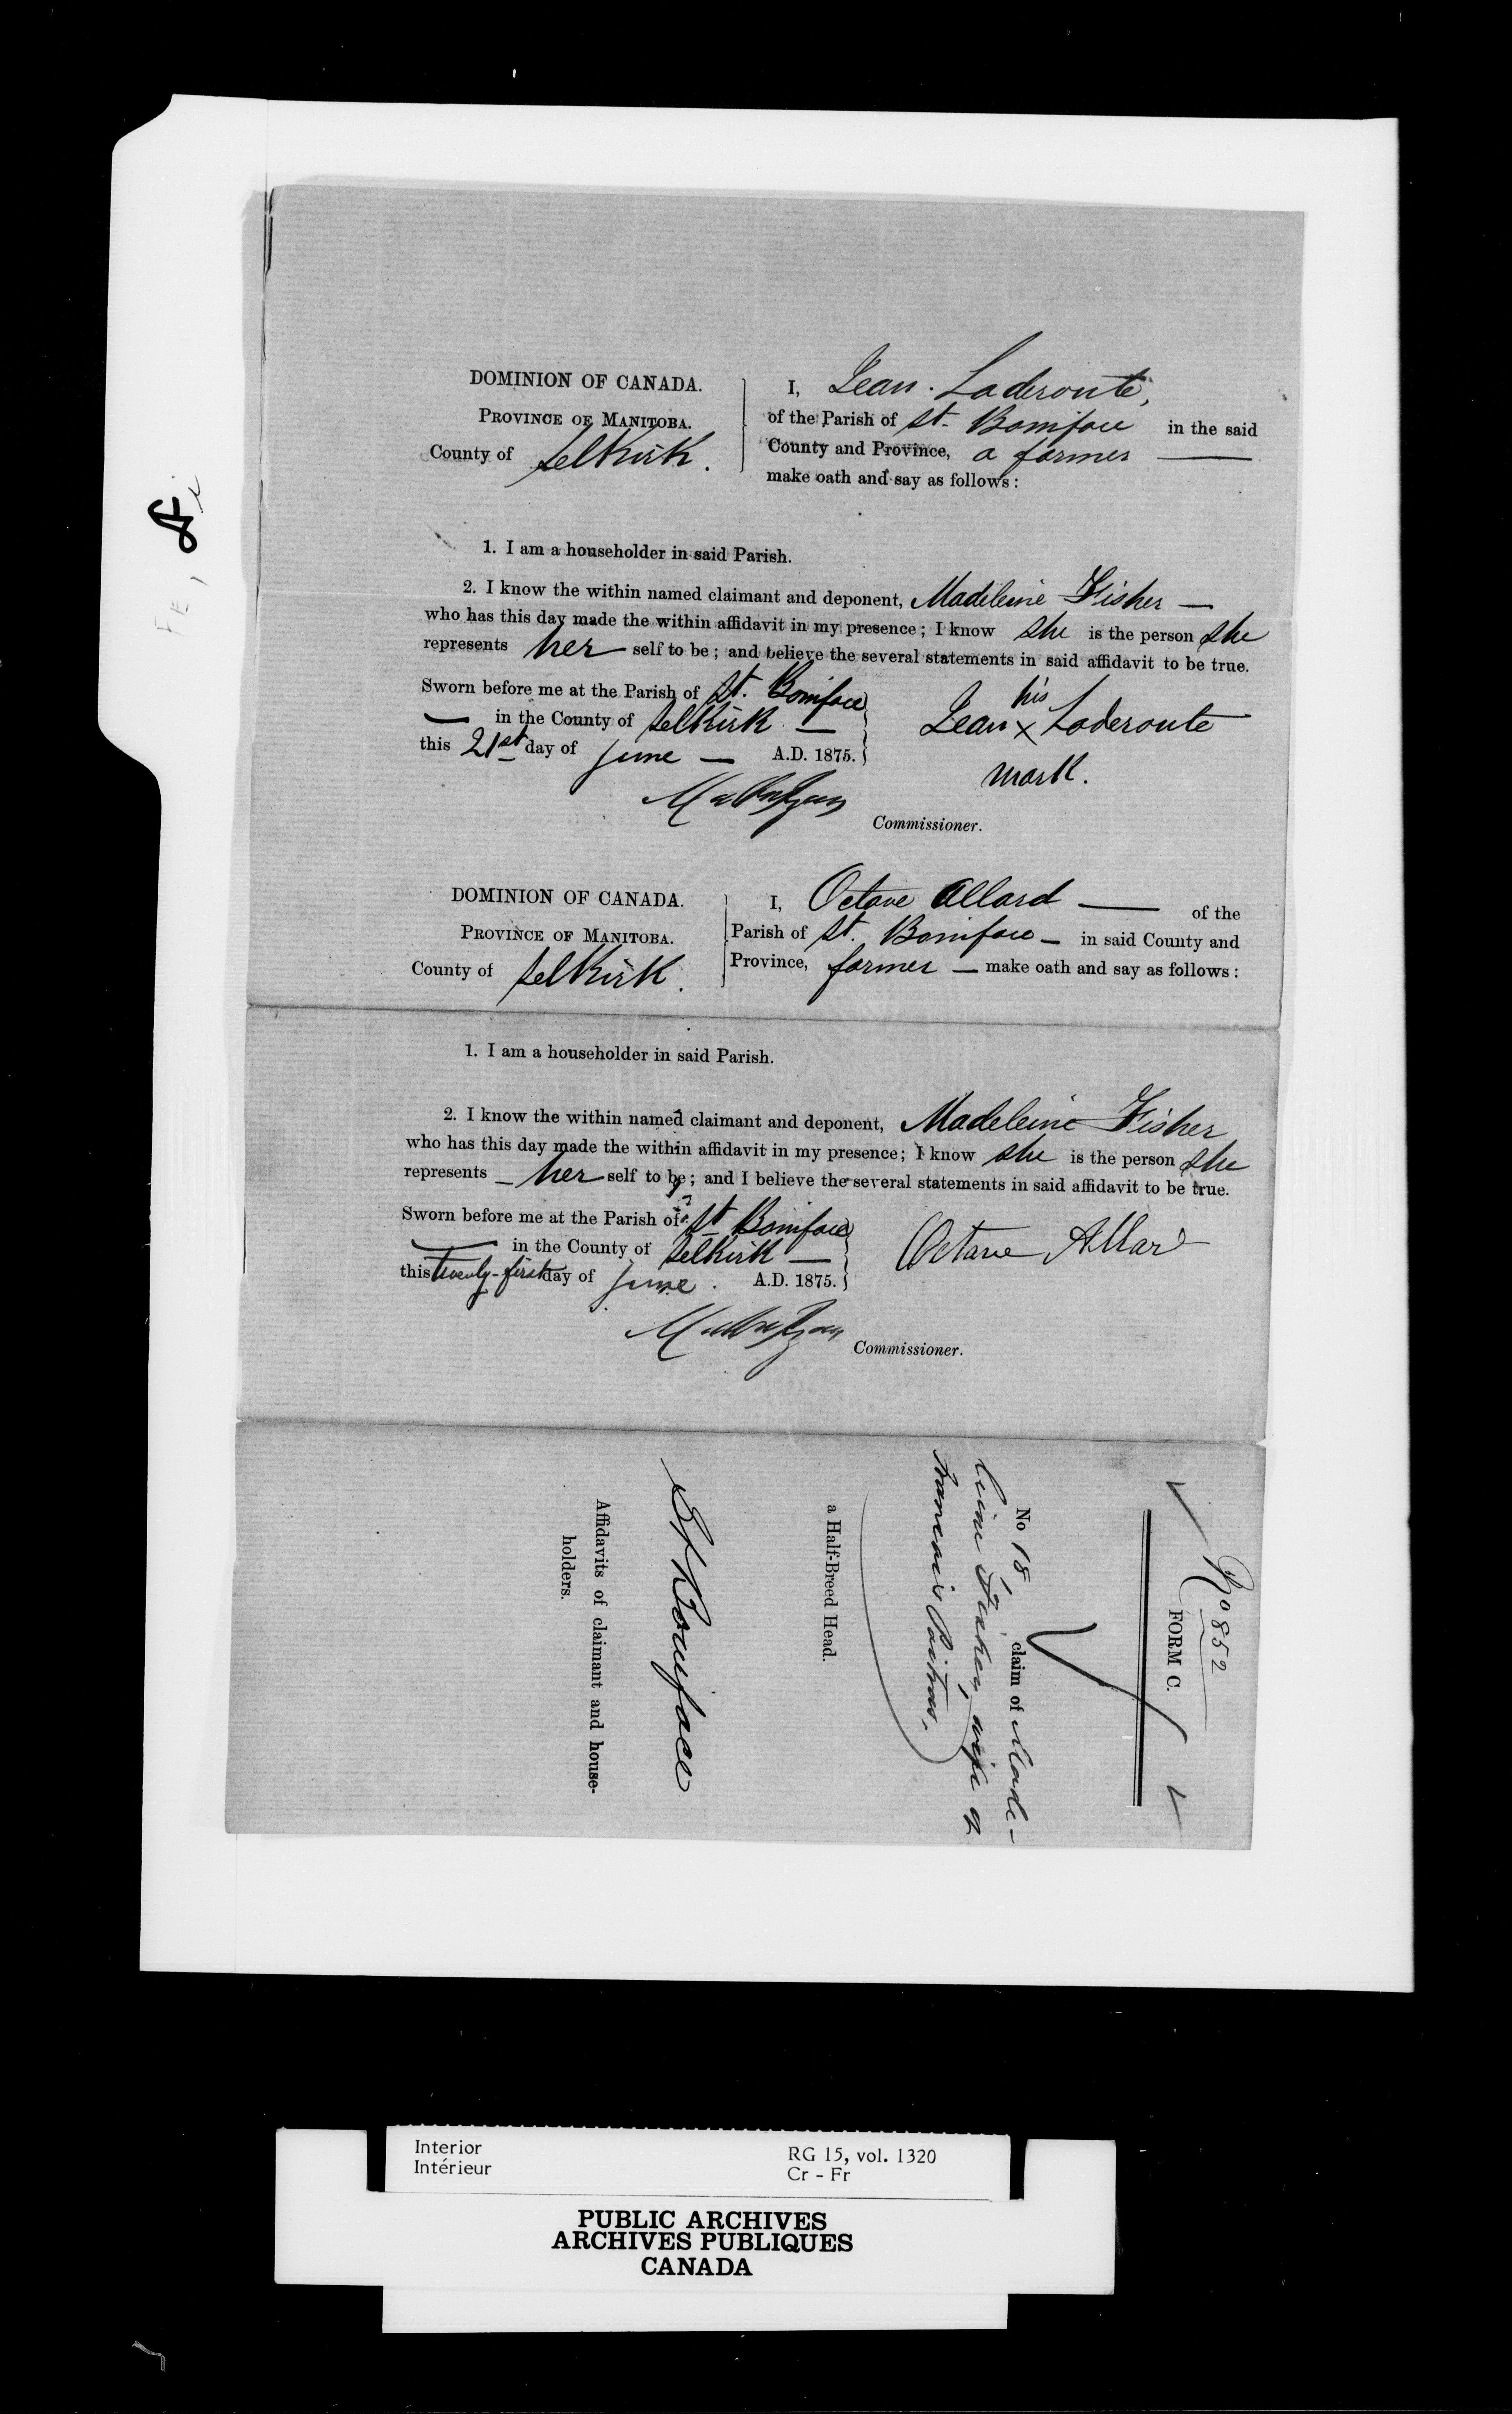 DOMINION OF CANADA.
PROVINCE OF MANITOBA.
County of Selkirk.
I, Jean Laderoute,
of the Parish of St. Boniface in the said
County and Province, a farmer
make oath and say as follows:
1. I am a householder in said Parish.
2. I know the within named claimant and deponent, Madeleine Fisher —
who has this day made the within affidavit in my presence; I know she is the person she
represents her self to be; and believe the several statements in said affidavit to be true.
Sworn before me at the Parish of St. Boniface
— in the County of Selkirk —
this 21st day of June — A.D. 1875.
his
Jean x Laderoute
mark.
Commissioner.
DOMINION OF CANADA.
PROVINCE OF MANITOBA.
County of Selkirk.
I, Octave Allard — of the
Parish of St. Boniface — in said County and
Province, farmer — make oath and say as follows:
1. I am a householder in said Parish.
2. I know the within named claimant and deponent, Madeleine Fisher
who has this day made the within affidavit in my presence; I know she is the person she
represents — her self to be; and I believe the several statements in said affidavit to be true.
Sworn before me at the Parish of St Boniface
— in the County of Selkirk —
this twenty-first day of June. A.D. 1875.
Octave Allard
Commissioner.
No 852
FORM C.
No 18 claim of Made-
leine Fisher, wife of
Francois Poitras.
a Half-Breed Head.
St Boniface
Affidavits of claimant and house-
holders.
Interior
Intérieur
RG 15, vol. 1320
Cr - Fr
PUBLIC ARCHIVES
ARCHIVES PUBLIQUES
CANADA